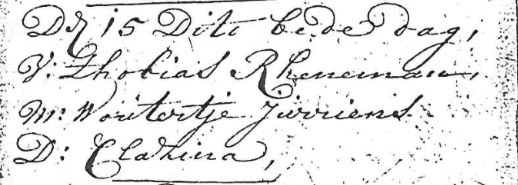 Dƞ 15 Dito bede dag,
V: Thobias Rheneman,
M: Woutertje Jurriens
D: Clasina,